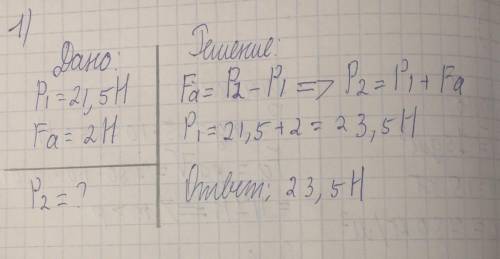 1)
Дано:
P₁ = 21,5 Н
Fа = 2 Н
P₂ = ?
Решение:
Fа = P₂ - P₁ => P₂ = P₁ + Fа
P₁ = 21,5 + 2 = 23,5 Н
Ответ: 23,5 Н